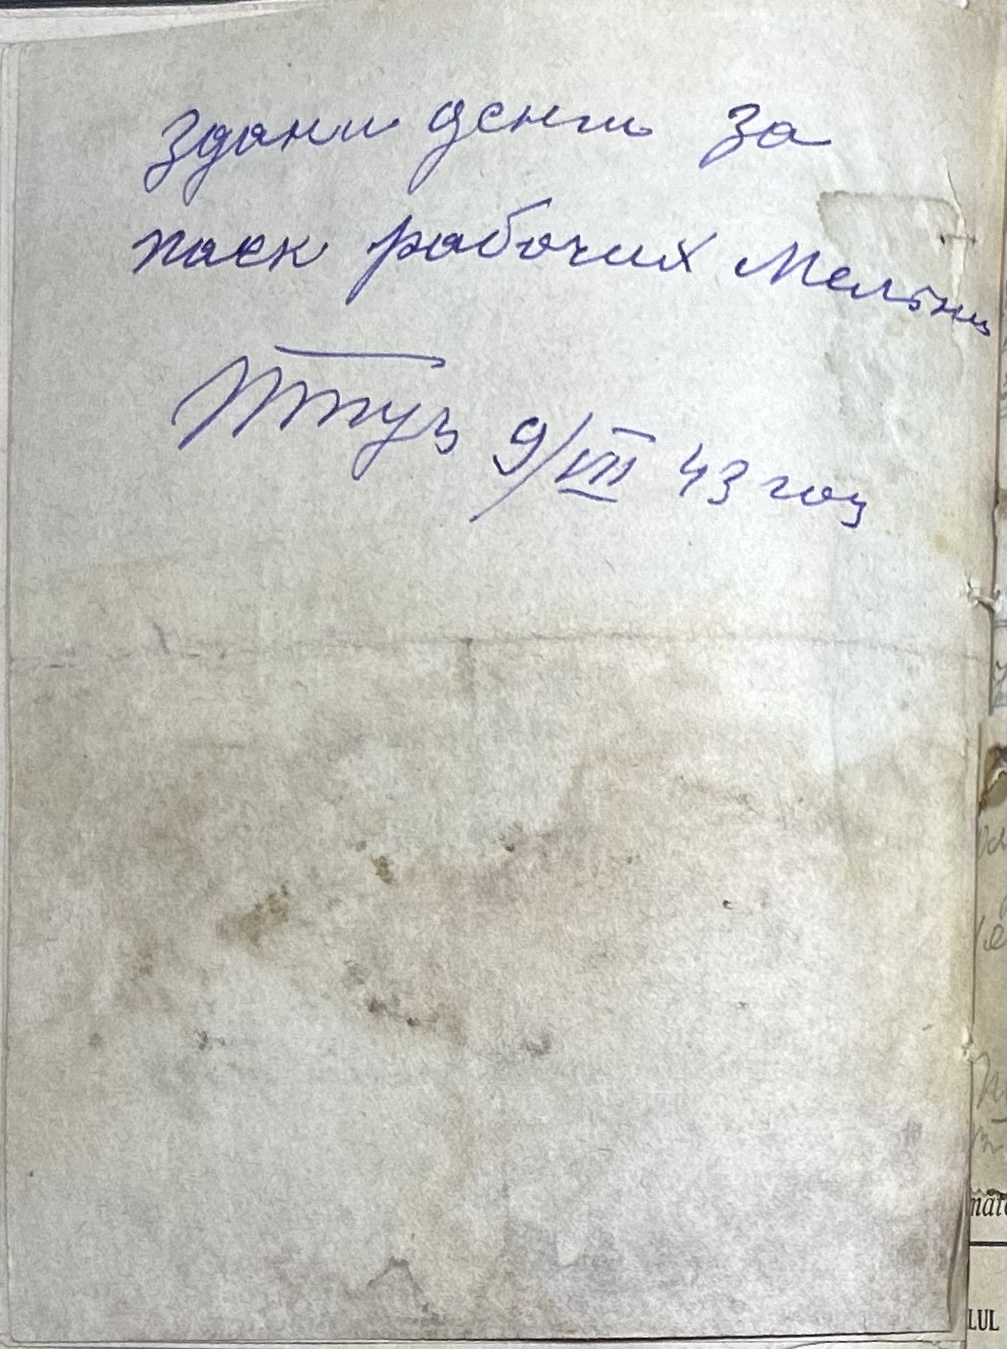 здани денги за
паек рабочих Мелбни
9/VIII 43 год
mate
LUL